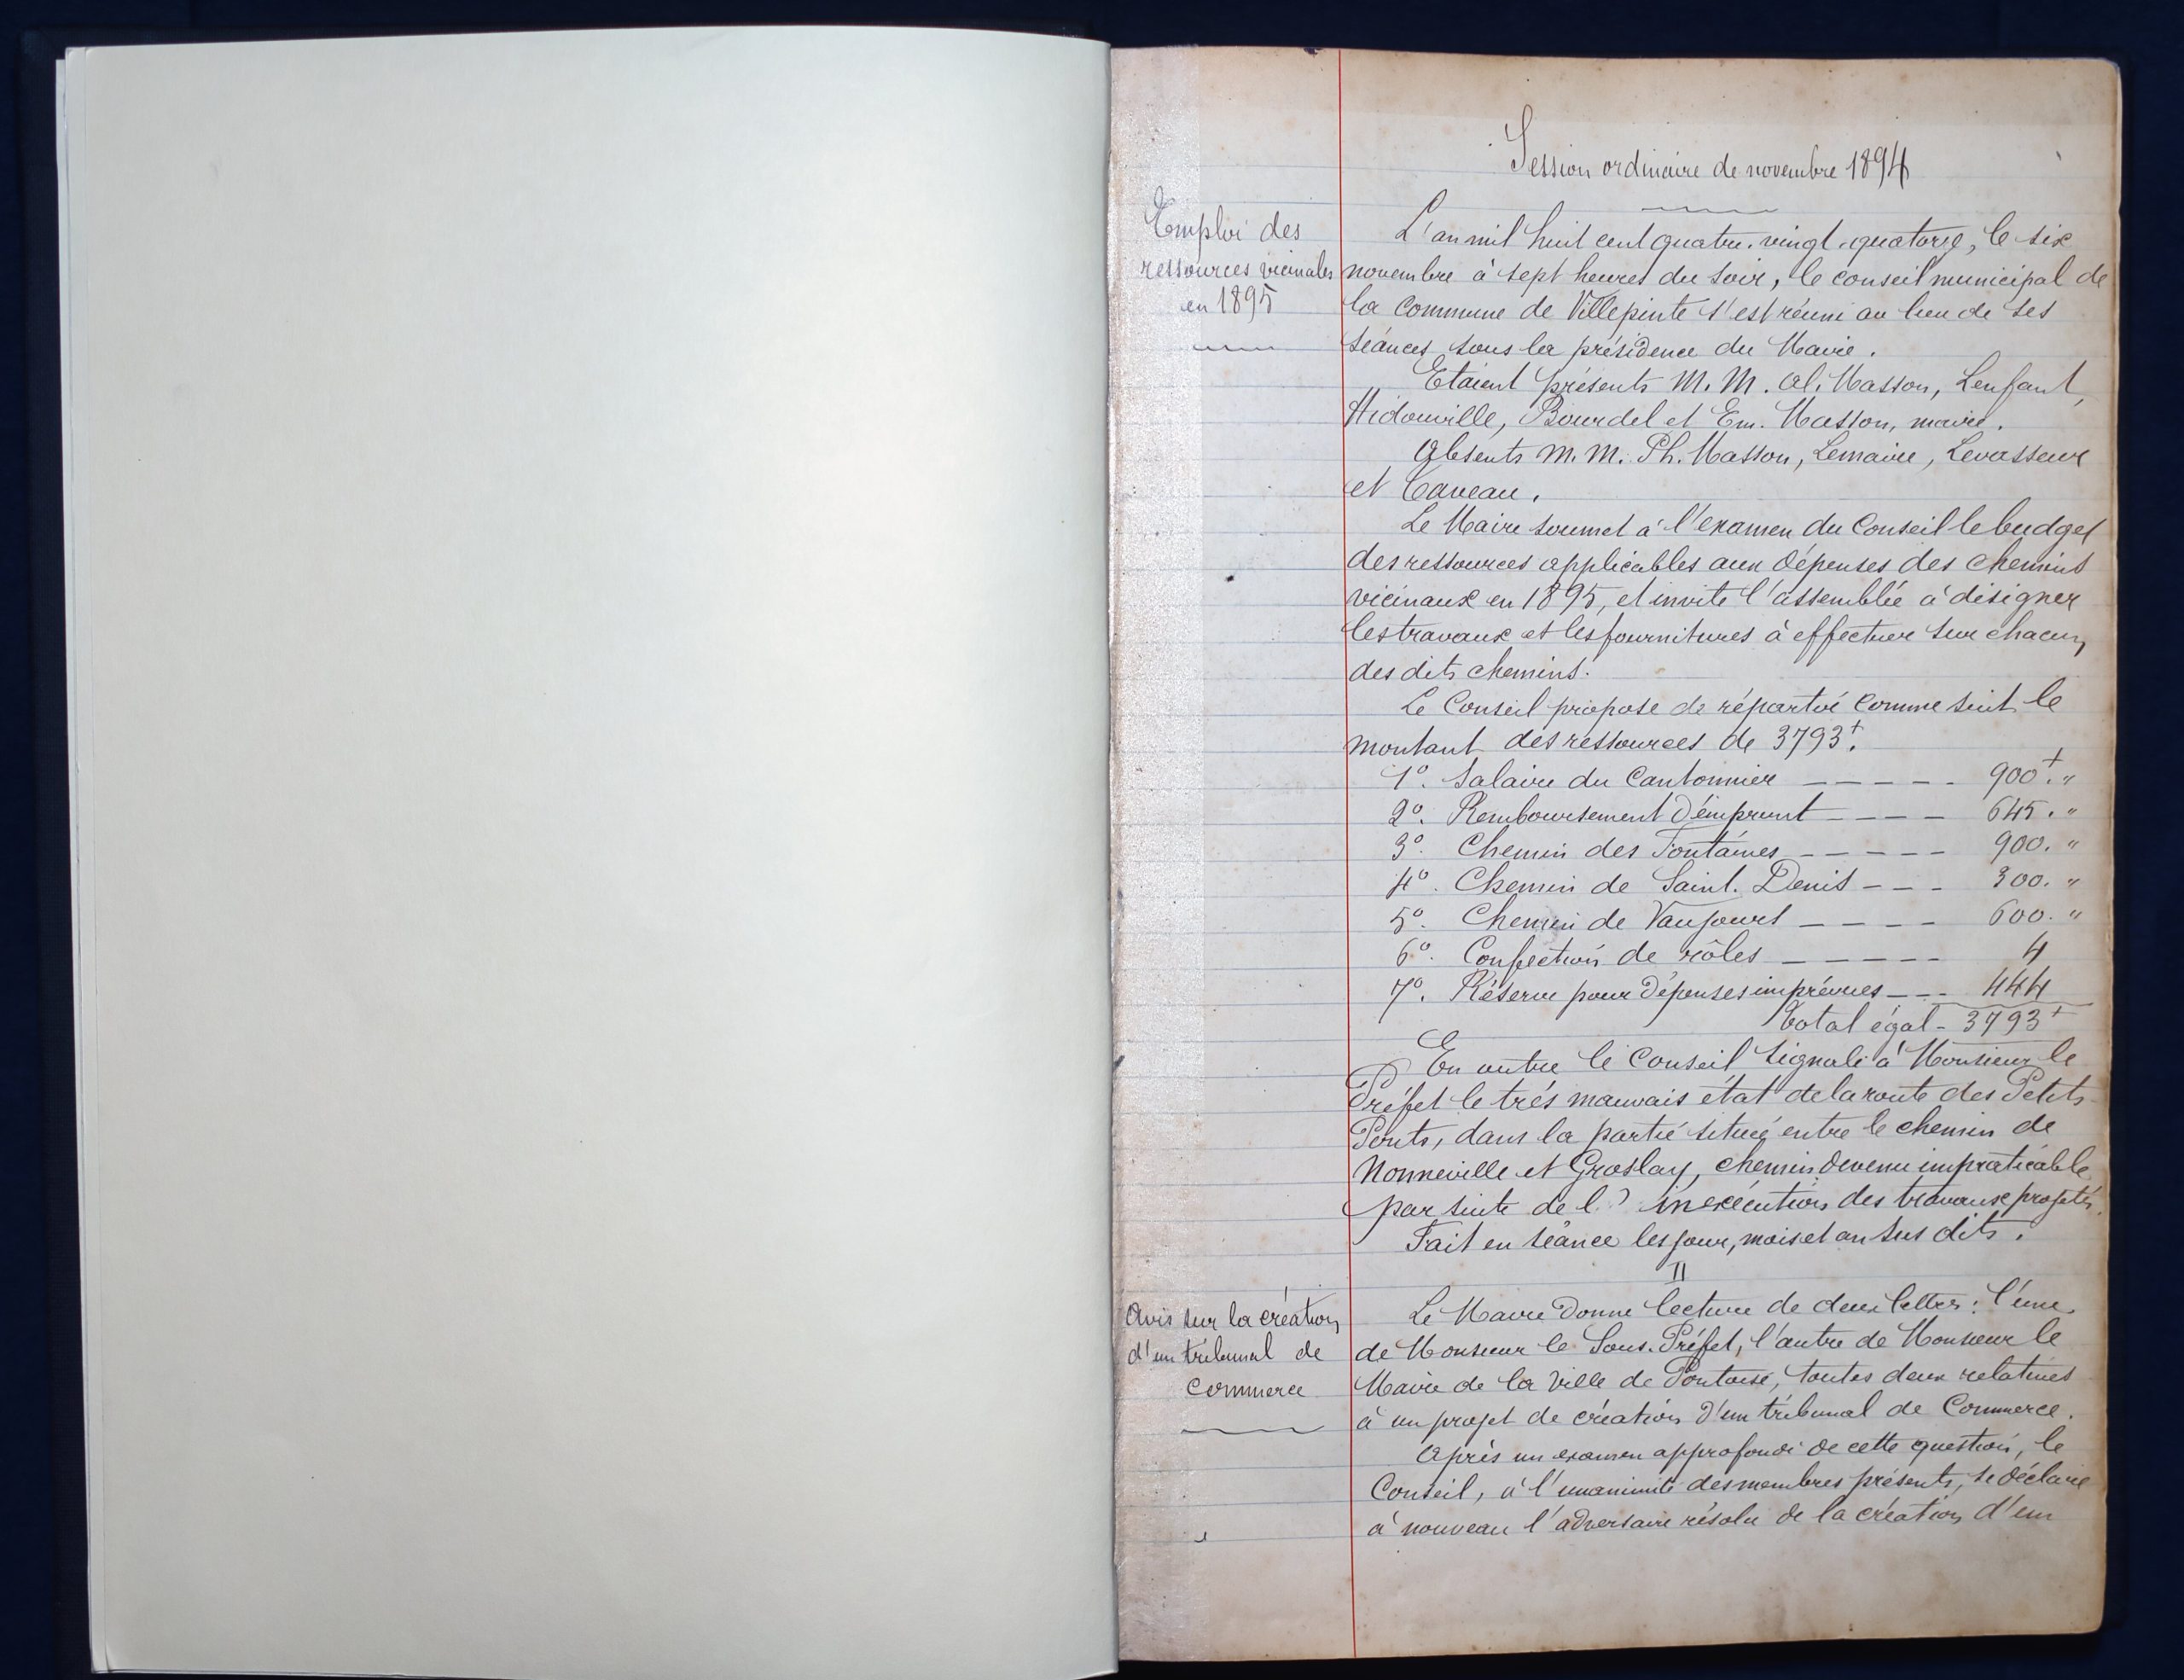 Session ordinaire de novembre 1894
Emploi des
ressources vicinales
en 1895
L'an mil huit cent quatre-vingt-quatorze, le six
novembre à sept heures du soir, le conseil municipal de
la Commune de Villepinte s'est réuni au lieu de ses
séances, sous la présidence du Maire.
Etaient présents M.M. Al. Masson, Lenfant,
Hidouville, Bourdel et Em. Masson, maire.
Absents M.M. Ph. Masson, Lemaire, Levasseur
et Caveau.
Le Maire soumet à l'examen du Conseil le budget
des ressources applicables aux dépenses des chemins
vicinaux en 1895, et invite l'assemblée à désigner
les travaux et les fournitures à effectuer sur chacun
des dits chemins.
Le Conseil propose de répartir comme suit le
montant des ressources de 3793f.
1°. Salaire du Cantonnier - - - - - 900f. "
2°. Remboursement d'emprunt - - - - 645. "
3°. Chemin des Fontaines - - - - - 900. "
4°. Chemin de Saint-Denis - - - 300. "
5°. Chemin de Vaujours - - - - 600. "
6°. Confection de rôles - - - - - 4
7°. Réserve pour dépenses imprévues - - - 444
Total égal - 3793f
En outre le Conseil signale à Monsieur le
Préfet le très mauvais état de la route des Petits
Ponts, dans la partie située entre le chemin de
Nonneville et Groslay, chemin devenu impraticable
par suite de l' inexécution des travaux projetés.
Fait en séance les jour, mois et an sus dits.
II
Avis sur la création
d'un tribunal de
Commerce
Le Maire donne lecture de deux lettres : l'une
de Monsieur le Sous-Préfet, l'autre de Monsieur le
Maire de la Ville de Pontoise, toutes deux relatives
à un projet de création d'un tribunal de Commerce.
Après un examen approfondi de cette question, le
Conseil, à l'unanimité des membres présents, se déclare
à nouveau l'adversaire résolu de la création d'un